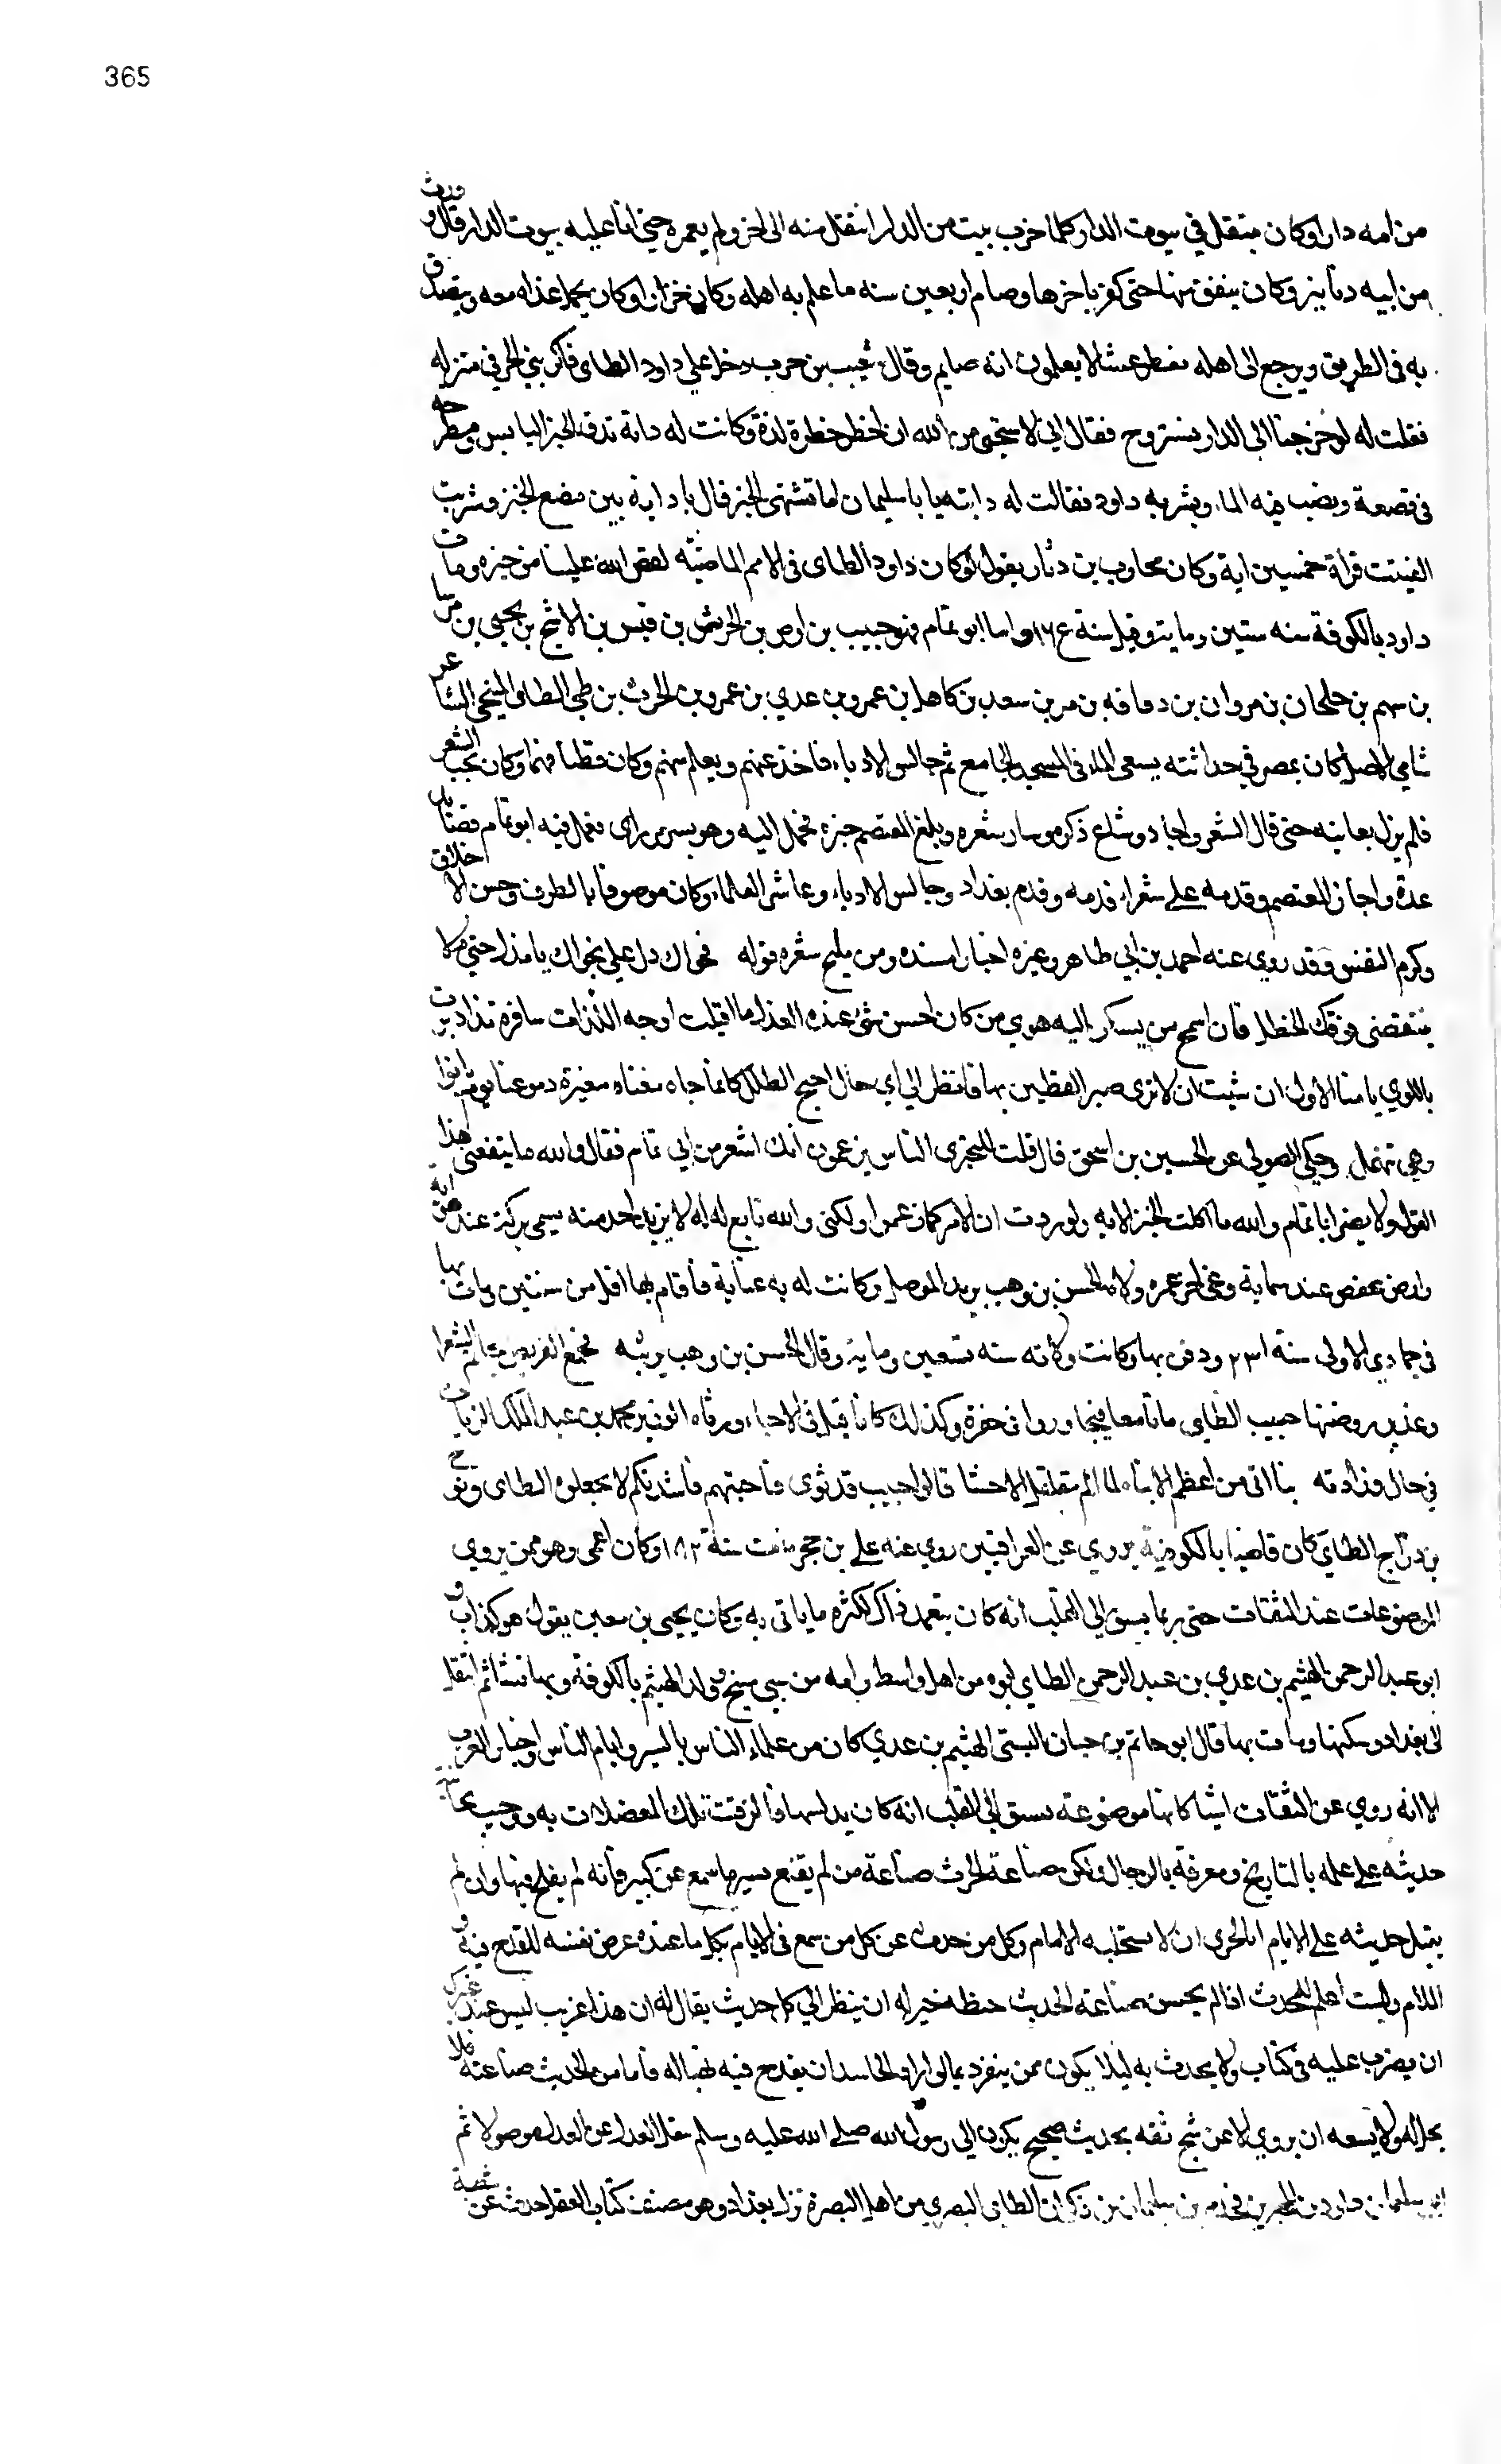 365
من امه دارا وكان ينتقل في بيوت الدار وكلما خرب بيت من الدار انتقل منه الى اخر ولم يعمره حتى اتا عليه بيوت الدار قال وورث
من ابيه دنانير وكان ينفق منها حتى كفن باخرها وصام اربعين سنه ما علم به اهله وكان خزازا وكان يحمل غذاه معه ويتصدق
به في الطريق ويرجع الى اهله يفطر عشا لا يعلمون انه صايم وقال شعيب بن حرب دخل علي داود الطاى فاكربني الحر في منزله
فقلت له لو خرجنا الى الدار نستروح فقال اني لا ستحيى من الله ان اخطو خطوة لذة وكانت له داية تدق الخبز اليابس وتطرحه
في قصعة ويصب فيه الماء ويشربه داود فقالت له دايته يا با سليمان اما تشتهى الخبز قال يا داية بين مضغ الخبز وشرب
الفتيت قراة خمسين اية وكان محارب بن دثار يقول لو كان داود الطاى في الامم الماضية لقص الله علينا من خبره ومات
داود بالكوفة سنه ستين وماية وقيل سنة ١٦٤ واما ابو تمام فهو حبيب بن اوس بن الحرث بن قيس بن الاشج بن يحيى بن مرسا
بن سهم بن حلحان بن مروان بن دفافه بن مر بن سعد بن كاهل بن عمرو بن عدي بن عمرو بن الحرث بن طي الطاى المنبجى الشاعر
شامي الاصل كان بمصر في حداثته يسقى الماء في المسجد الجامع ثم جالس الادباء فاخذ عنهم وتعلم منهم وكان فطنا فهما وكان يحب الشعر
فلم يزل يعانيه حتى قال الشعر واجاد وشاع ذكره وسار شعره وبلغ المعتصم خبره فحمل اليه وهو بسر من راى فعمل فيه ابو تمام قصايد
عدة واجازه المعتصم وقدمه علي شعراء قدمه وقدم بغداد وجالس الادباء وعاشر العلماء وكان موصوفا بالظرف وحسن الاخلاق
وكرم النفس وقد روي عنه احمد بن ابي طاهر وغيره اخبارا مسنده ومن مليح شعره قوله فحواك دل علي نجواك يا مذل حتي م لا
يتقضى قولك الخطل فان اسمح من يسكو اليه هوي من كان احسن شئ عنده العذل ما اقبلت اوجه اللذات سافرة مذ ادبرت
باللوي ايامنا الاول ان شيت ان لا ترى صبر القطين بها فانظر الي اي حال اصبح الطلل كانما جاد مغناه فغيره دموعنا يوم بانوا
وهي تنهمل وحكى الصولي عن الحسين بن اسحق قال قلت للبحترى الناس يزعمون انك اشعر من ابي تمام فقال والله ما ينفعني هذا
القول ولا يضر ابا تمام والله ما اكلت الخبز الا به ولوددت ان الامر كما زعموا ولكني والله تابع له لايذ به اخذ منه نسيمي يركد عند هوايه
وارضى تخفض عند سمايه وفي اخر عمره ولاه الحسن بن وهب بريد الموصل وكانت له به عناية فاقام بها اقل من سنتين ومات بها
في جمادي الاولى سنة ٢٣١ ودفن بها وكانت ولادته سنه تسعين وماية وقال الحسن بن وهب يرثيه فجع القريض بخاتم الشعرا
وغدير روضتها حبيب الطاى ماتا معا فتجاورا في حفرة وكذلك كانا قبل في الاحياء ورثاه الوزير محمد بن عبد الملك الزيات
في حال وزارته نبا اتى من اعظم الانباء لما الم مقلقل الاحشا قالوا حبيب قد ثوى فاجبتهم ناشدتكم لا تجعلوه الطاى ونوح
بن دراج الطاى كان قاضيا بالكوفة يروي عن العراقيين روي عنه علي بن حجر مات سنة ١٨٢ وكان اعمى وهو ممن يروي
الموضوعات عند الثقات حتى ربما يسبق الي القلب انه كان يتعمد ذاك لكثره ما ياتى به وكان يحيى بن معين يقول هو كذاب و
ابو عبد الرحمن الهيثم بن عدي بن عبد الرحمن الطاى ابوه من اهل واسط وامه من سبي منبج وولد الهيثم بالكوفة وبها نشا ثم انتقل
الى بغداد وسكنها ومات بها قال ابو حاتم بن حبان البستى الهيثم بن عدي كان من علماء الناس بالسير وايام الناس واخبار العرب
الا انه روي عن الثقات اشيا كانها موضوعه يسبق الي القلب انه كان يدلسها فالزقت تلك المعضلات به ووجب مجانبة
حديثه علي علمه بالتاريخ ومعرفة بالرجال ولكن صناعة الحرث صناعة من لم يقنع بيسير ما سمع عن كبير فانه لم يفلح فيها وان لم
يتبل حديثه علي الايام الحرى ان لا يستحليه الامام وكل من حدث عن كل من سمع في الايام بكل ما عنده عرض نفسه للقدح فيه و
الملام ولست اعلم للمحدث اذا لم يحسن صناعة الحديث خصلة خير له ان ينظر الي كل حديث يقال له ان هذا غريب ليس عند غيرك
ان يضرب عليه في كتابه ولا يحدث به ليلا يكون ممن ينفرد بما لو اراد الحاسد ان يقدح فيه تهياله فاما من الحديث صناعته فلا
يحل له ولا يسعه ان يروي الا عن شيخ ثقه بحديث صحيح يكون الي رسول الله صلى الله عليه وسلم بنقل العدل عن العدل موصولا ثم
ابو سليمان داود بن المحبر بن قحذم بن سليمان بن ذكوان الطاى البصري من اهل البصرة نزل بغداد وهو مصنف كتاب العقل حدث عن شعبة